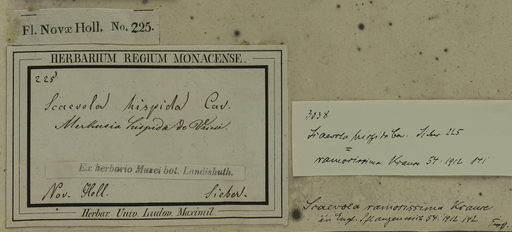 Fl. Novæ Holl. No. 225.
HERBARIUM REGIUM MONACENSE.
225
Scaevola hispida Cav.
Merkusia hispida de Vriese
Ex herbario Musei bot. Landishuth.
Nov. Holl. Sieber.
Herbar. Univ. Ludov. Maximil.
3038
Scaevola hispida Cav. Sieber 225
=
ramosissima Krause 54. 1912 141
Scaevola ramosissima Krause
in Engl. Pflanzenreich 54. 1912 142